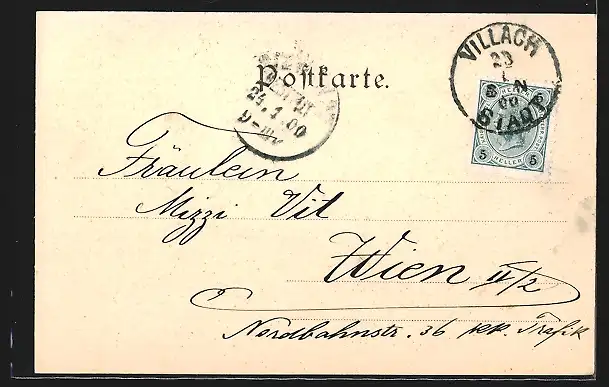 Postkarte.
VILLACH
23
1
00
STADT
5 5
HELLER
24. 1. 00
Fräulein
Mizzi Vit
Wien II/2
Nordbahnstr. 36 kk. Trafik